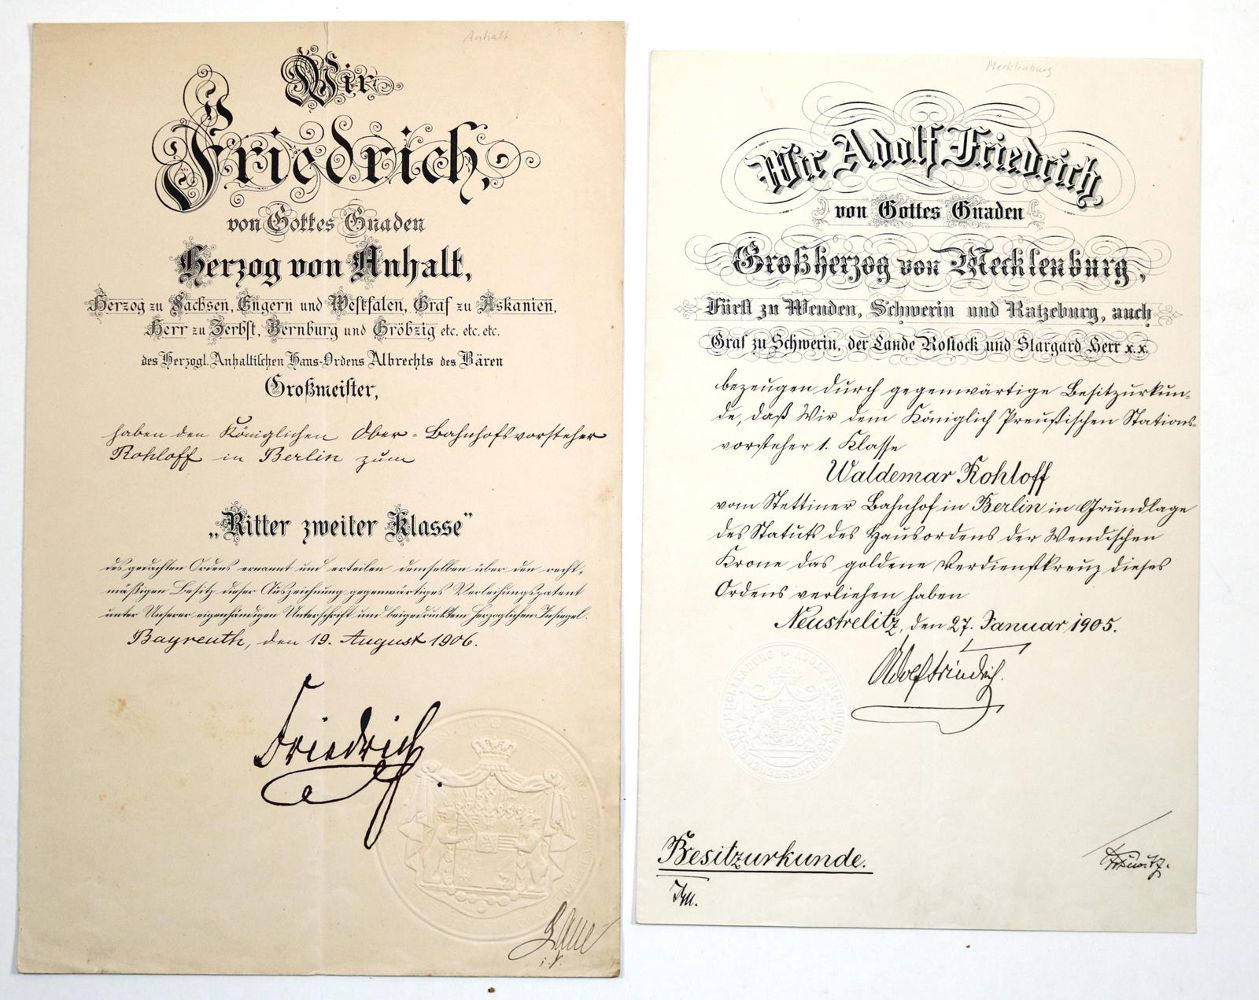 Anhalt
Wir
Friedrich,
von Gottes Gnaden
Herzog von Anhalt,
Herzog zu Sachsen, Engern und Westfalen, Graf zu Askanien,
Herr zu Zerbst, Bernburg und Gröbzig etc. etc. etc.
des Herzogl. Anhaltischen Haus-Ordens Albrechts des Bären
Großmeister,
haben den Königlichen Ober-Bahnhofsvorsteher
Rohloff in Berlin zum
„Ritter zweiter Klasse”
des gedachten Ordens ernannt und erteilen demselben über den recht-
mäßigen Besitz dieser Auszeichnung gegenwärtiges Verleihungspatent
unter Unserer eigenhändigen Unterschrift und beigedrucktem Herzoglichen Insiegel.
Bayreuth, den 19. August 1906.
Friedrich.
i. V.
Mecklenburg
Wir Adolf Friedrich
von Gottes Gnaden
Großherzog von Mecklenburg,
Fürst zu Wenden, Schwerin und Ratzeburg, auch
Graf zu Schwerin, der Lande Rostock und Stargard Herr x.x.
bezeugen durch gegenwärtige Besitzurkun-
de, daß Wir dem Königlich Preußischen Stations-
vorsteher 1. Klasse
Waldemar Rohloff
vom Stettiner Bahnhof in Berlin in Grundlage
des Statuts des Hausordens der Wendischen
Krone das goldene Verdienstkreuz dieses
Ordens verliehen haben
Neustrelitz, den 27. Januar 1905.
Adolf Friedrich.
Besitzurkunde.